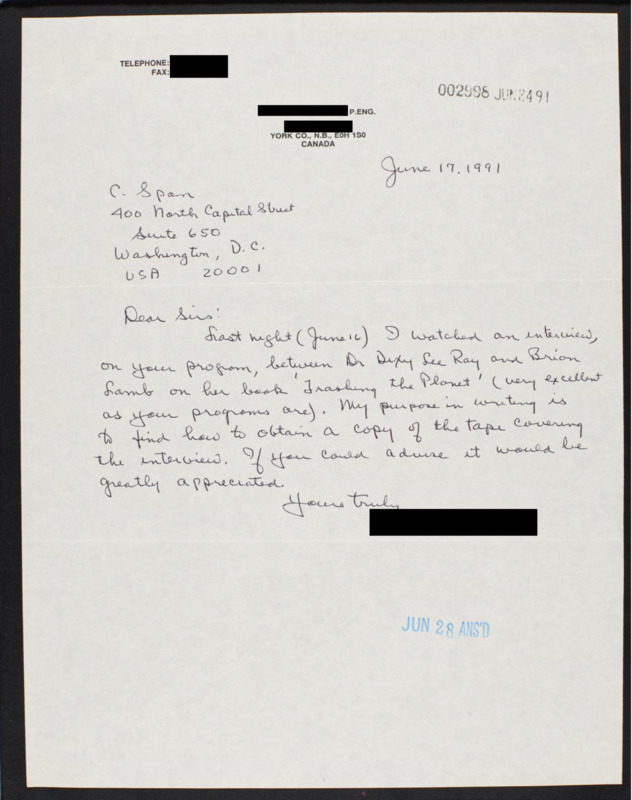 TELEPHONE:
FAX:
002998 JUN 24 91
P.ENG.
YORK CO., N.B., E0H 1S0
CANADA
June 17, 1991
C. Span
400 North Capital Street
Suite 650
Washington, D.C.
USA 20001
Dear Sirs:
Last night (June 16) I watched an interview,
on your program, between Dr Dixy Lee Ray and Brian
Lamb on her book 'Trashing the Planet' (very excellent
as your programs are). My purpose in writing is
to find how to obtain a copy of the tape covering
the interview. If you could advise it would be
greatly appreciated.
Yours truly
JUN 28 ANS'D